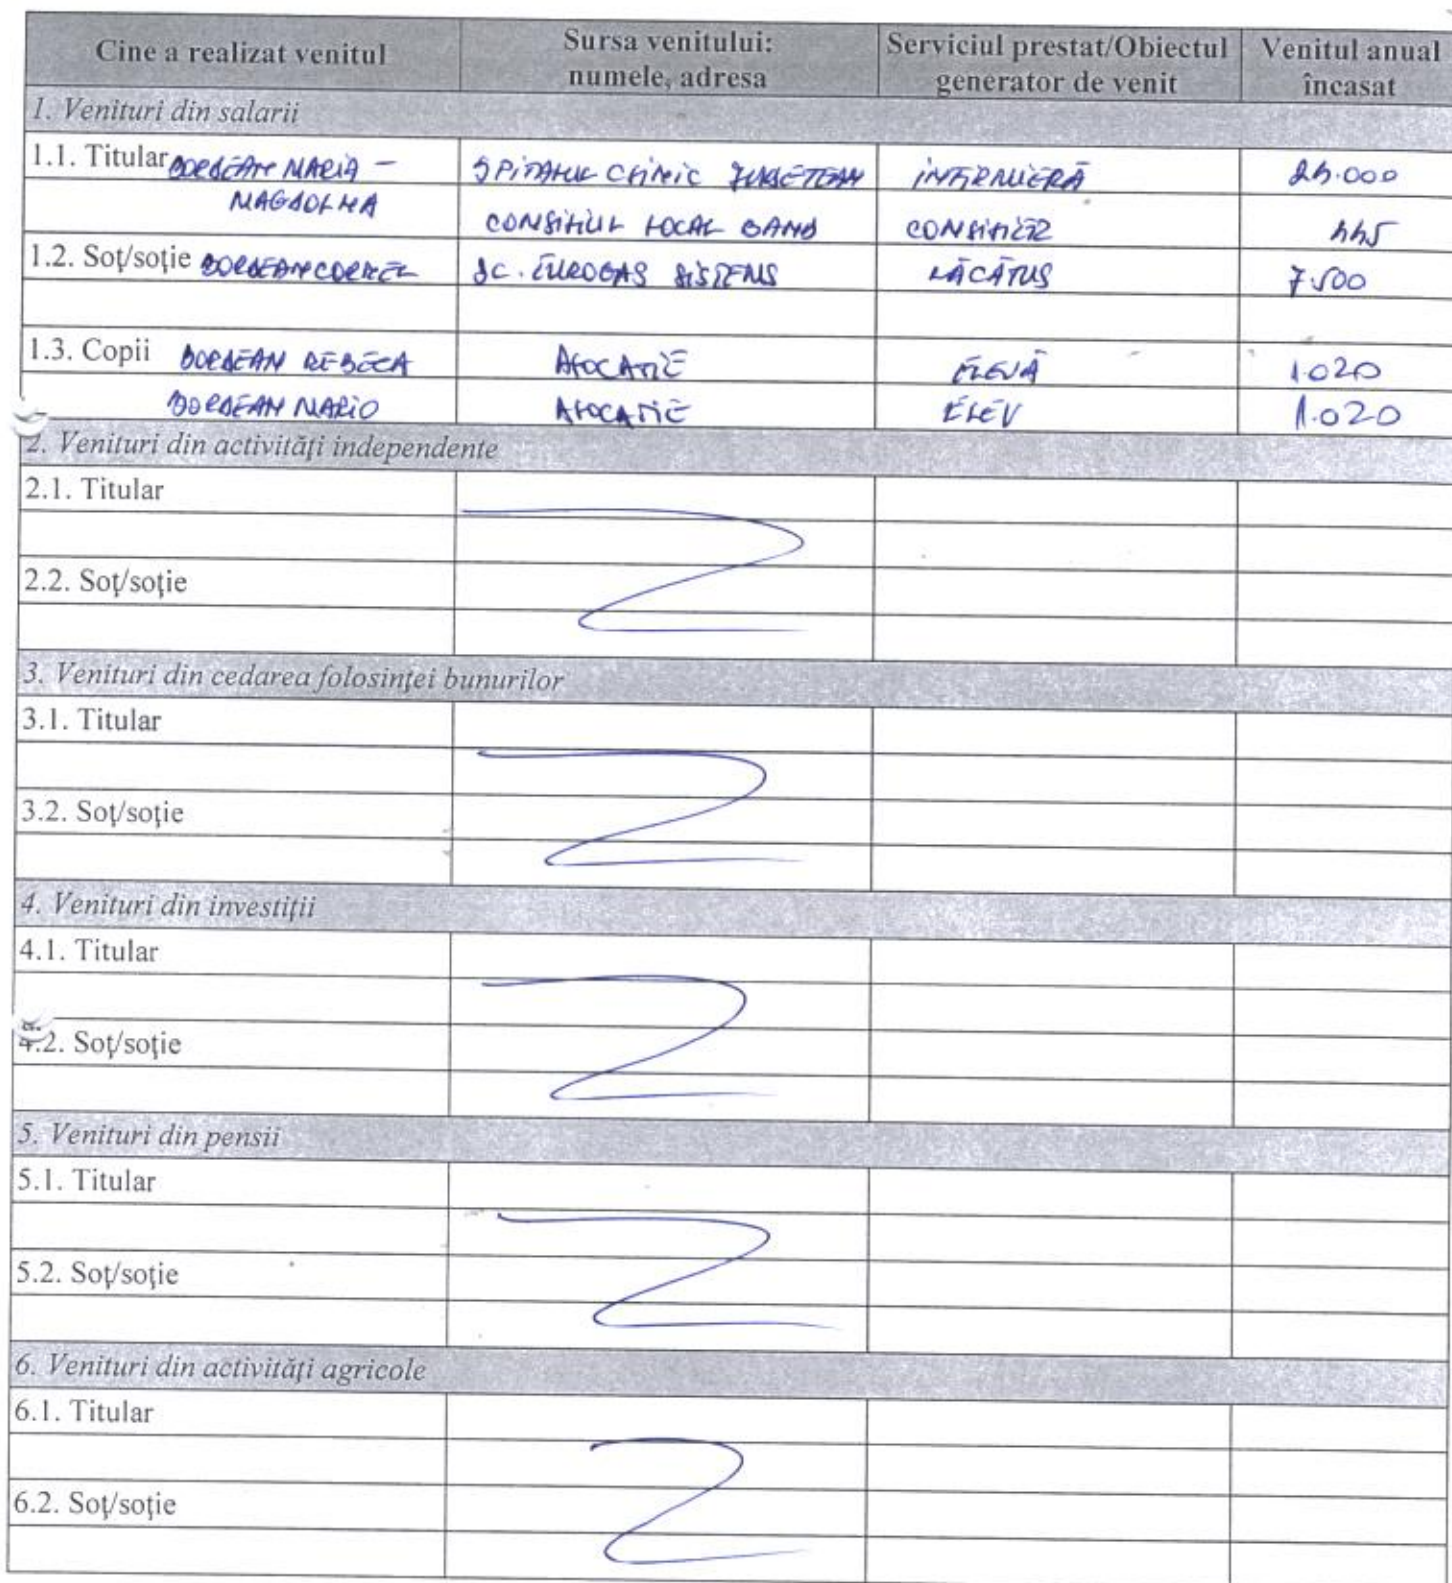 Cine a realizat venitul Sursa venitului: numele, adresa Serviciul prestat/Obiectul generator de venit Venitul anual încasat
1. Venituri din salarii
1.1. Titular BORDEAN MARIA - SPITALUL CLINIC JUDETEAN INFIRMIERĂ
MAGDOLNA CONSILIUL LOCAL BAND CONSILIER 445
1.2. Soţ/soţie BORDEAN CORNEL SC. EUROGAS SISTEMS LĂCĂTUŞ 7.500
1.3. Copii BORDEAN REBECA ALOCATIE ELEVĂ 1.020
BORDEAN MARIO ALOCATIE ELEV 1.020
2. Venituri din activităţi independente
2.1. Titular
2.2. Soţ/soţie
3. Venituri din cedarea folosinţei bunurilor
3.1. Titular
3.2. Soţ/soţie
4. Venituri din investiţii
4.1. Titular
4.2. Soţ/soţie
5. Venituri din pensii
5.1. Titular
5.2. Soţ/soţie
6. Venituri din activităţi agricole
6.1. Titular
6.2. Soţ/soţie